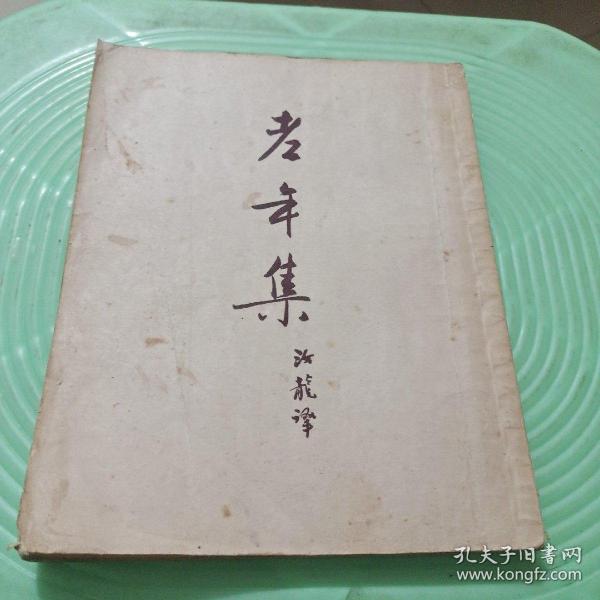 老年集
汝龍譯
孔夫子旧书网
www.kongfz.com